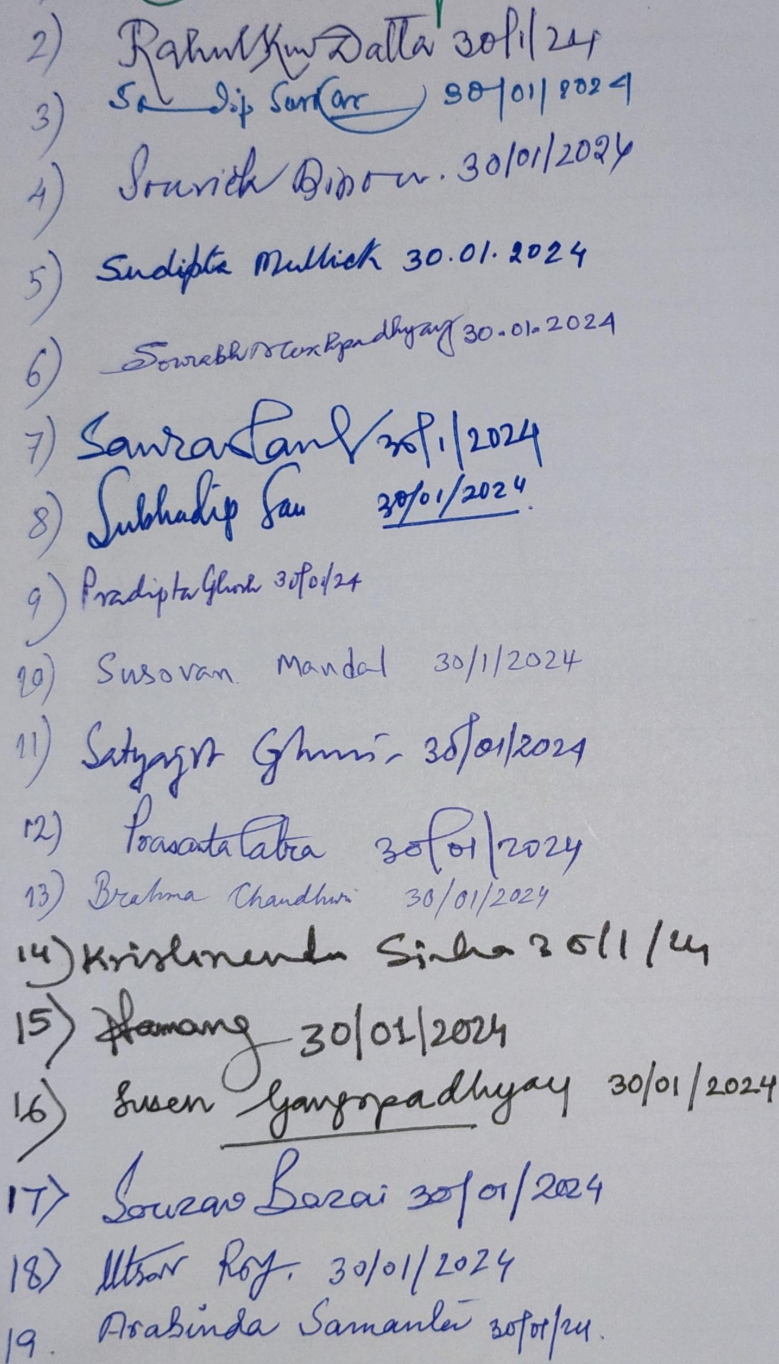 2) Rahul Kr Datta 30/1/24
3) Sandip Sarkar 30/01/2024
4) Souvick 30/01/2024
5) Sudipta Mullick 30.01.2024
6) Sourabh Mukhopadhyay 30.01.2024
7) 30/1/2024
8) Subhadip Sau 30/01/2024
9) Pradipta Ghosh 30/01/24
10) Susovan Mandal 30/1/2024
11) 30/01/2024
12) Prasanta Patra 30/01/2024
13) Brahma Chaudhuri 30/01/2024
14) Krishnendu Sinha 30/1/24
15) 30/01/2024
16) Susen Gangopadhyay 30/01/2024
17) Sourav Barai 30/01/2024
18) Utsav Roy. 30/01/2024
19. Arabinda Samanta 30/01/24.